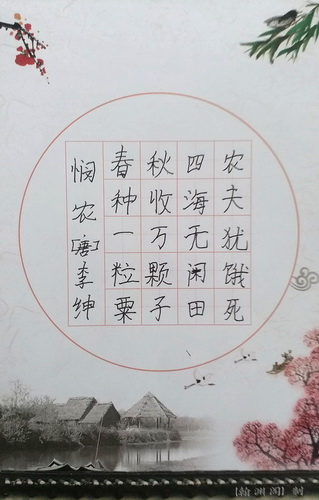 悯农[唐]李绅
春种一粒粟
秋收万颗子
四海无闲田
农夫犹饿死
[翰洲阁]制